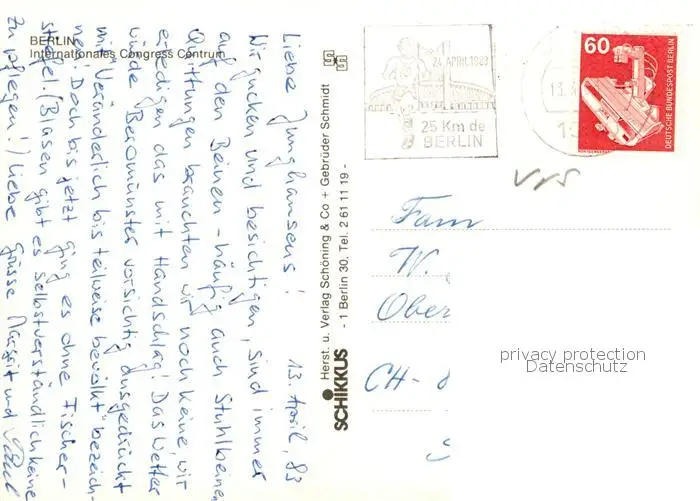 BERLIN
Internationales Congress Centrum
13. April, 83
Liebe Junghansens!
Wir gucken und besichtigen, sind immer
auf den Beinen - häufig auch Stuhlbeinen,
Quittungen brauchten wir noch keine, wir
erledigen das mit Handschlag! Das Wetter
würde Beromünster vorsichtig ausgedrückt
mit "Veränderlich bis teilweise bevölkt" bezeich-
nen! Doch bis jetzt ging es ohne Fischer-
stiefel. (Blasen gibt es selbstverständlich keine
zu pflegen!) Liebe Grüsse Margrit und
SCHIKKUS
Herst. u. Verlag Schöning & Co + Gebrüder Schmidt
- 1 Berlin 30, Tel. 2 61 11 19 -
24 APRIL 1983
25 Km de
BERLIN
13.
60
DEUTSCHE BUNDESPOST BERLIN
Fam
W.
Ober
CH-
privacy protection
Datenschutz